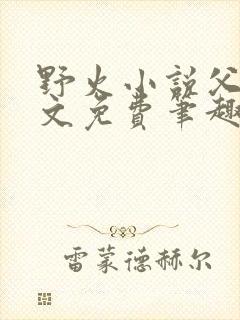 野火小说父
文免费笔趣
雷蒙德赫尔